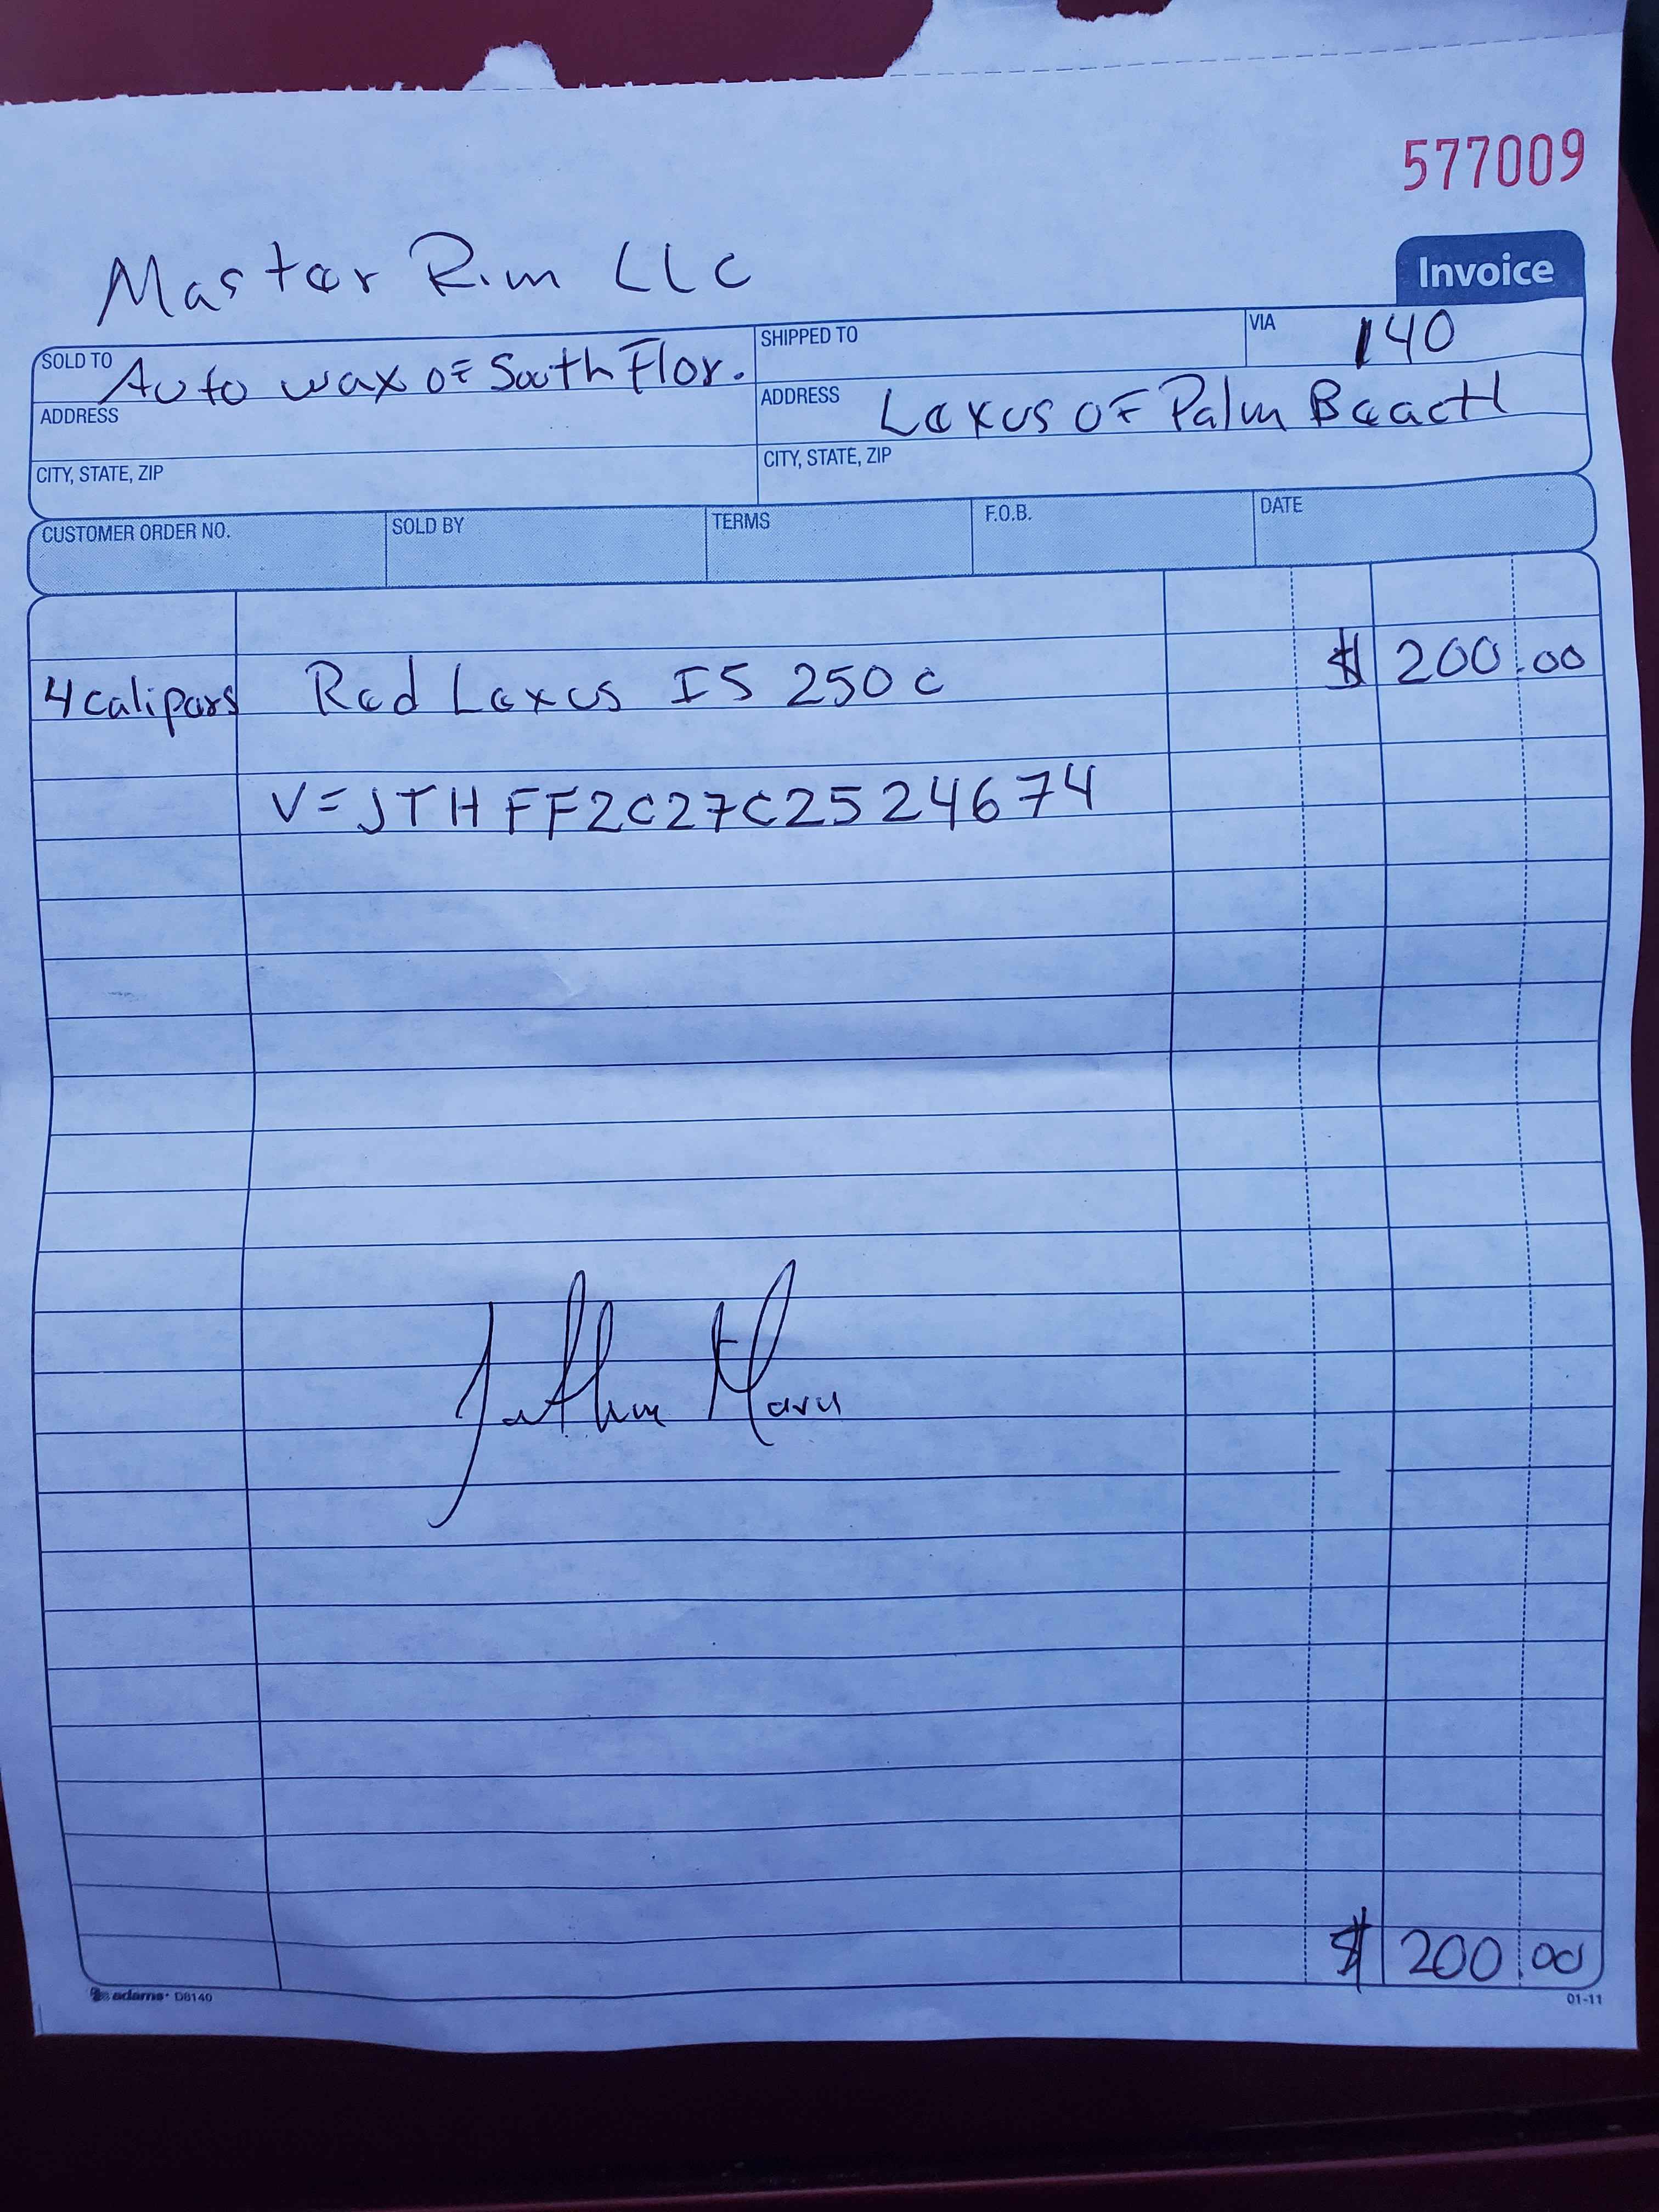 577009
Master Rim LLC
Invoice
SOLD TO Auto wax OF South Flor.
SHIPPED TO
VIA 140
ADDRESS
ADDRESS Lexus OF Palm BeactH
CITY, STATE, ZIP
CITY, STATE, ZIP
CUSTOMER ORDER NO. SOLD BY TERMS F.O.B. DATE
4 calipers Red Lexus IS 250 c $ 200.00
V=JTHFF2C27C2524674
$ 200.00
adams D8140 01-11